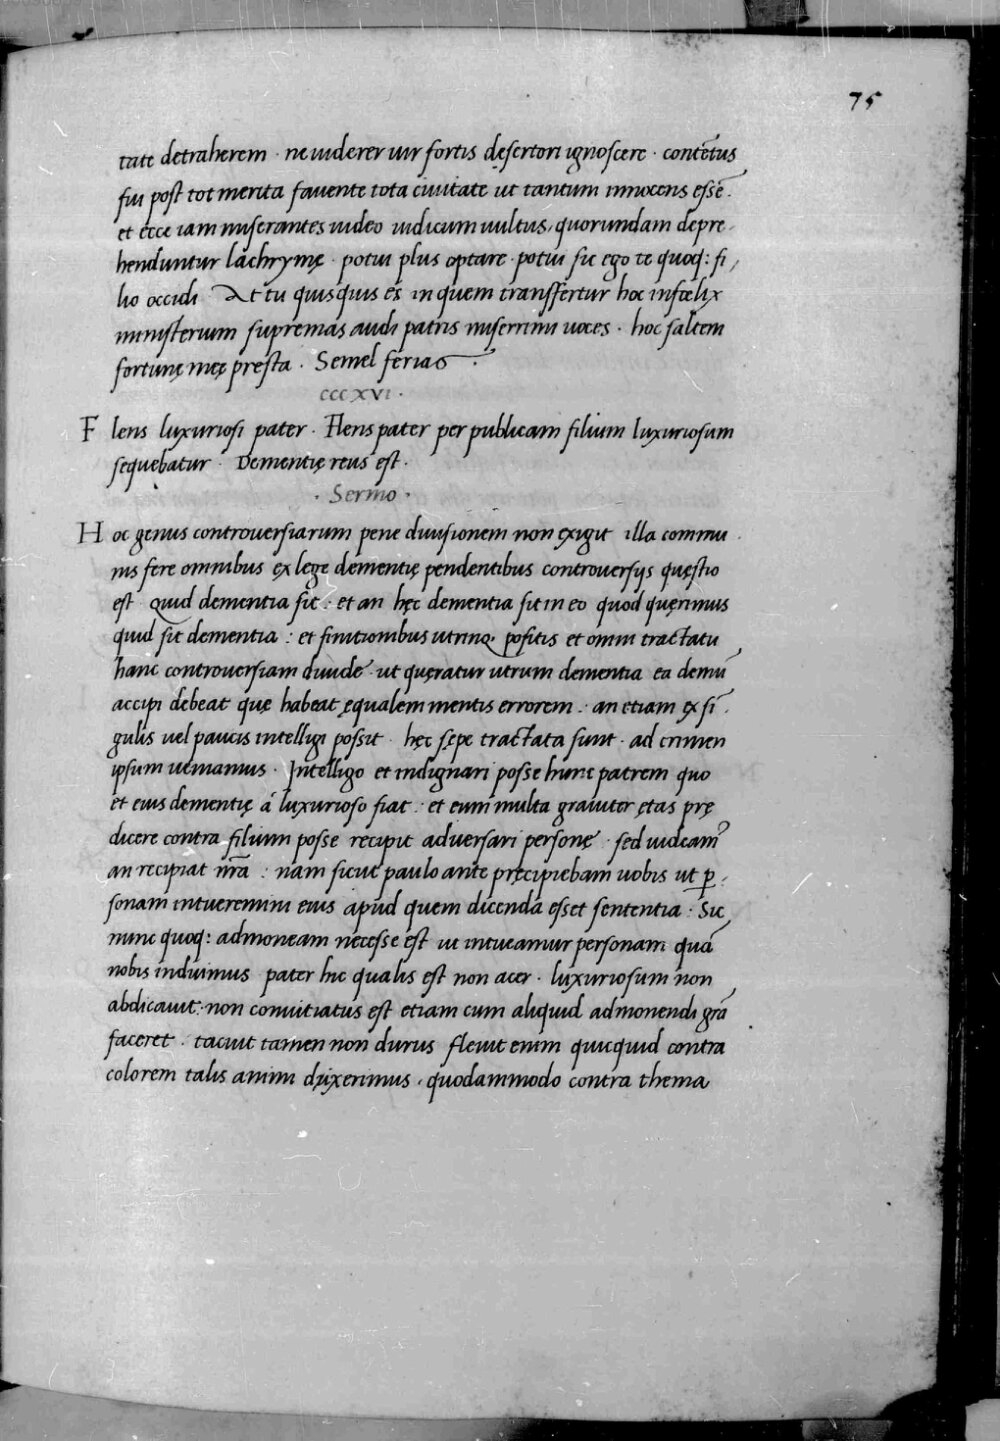 75
tate detraherem · ne uiderer uir fortis desertori ignoscere · contētus
fui post tot merita fauente tota ciuitate ut tantum innocens essē ·
et ecce iam miserantes uideo iudicum uultus, quorundam depre
henduntur lachrymę · potui plus optare · potui sic ego te quoq: fi
lio occidi · At tu quisquis es in quem transffertur hoc infœlix
ministerium supremas audi patris miserrimi uoces · hoc saltem
fortunę meę presta · Semel ferias ·
cccxvi ·
Flens luxuriosi pater · Flens pater per publicam filium luxuriosum
sequebatur · Dementię reus est ·
· Sermo ·
Hoc genus controuersiarum pene diuisionem non exigit illa commu
nis fere omnibus ex lege dementię pendentibus controuersijs quęstio
est Quid dementia sit : et an hęc dementia sit in eo quod quęrimus
quid sit dementia : et finitionibus utrinq· positis et omni tractatu
hanc controuersiam diuide · ut quęratur utrum dementia ea demū
accipi debeat quę habeat ęqualem mentis errorem : an etiam ex sī
gulis uel paucis intelligi possit · hęc sępe tractata sunt · ad crimen
ipsum ueniamus · Intelligo et indignari posse hunc patrem quo
et eius dementię á luxurioso fiat : et eum multa grauiter ętas prę
dicere contra filium posse recipit aduersari personę · sed uideam9
an recipiat nr̄a : nam sicut paulo ante pręcipiebam uobis ut ꝑ
sonam intueremini eius apud quem dicenda esset sententia : Sic
nunc quoq: admoneam necesse est ut intueamur personam quā
nobis induimus pater hic qualis est non acer · luxuriosum non
abdicauit · non conuitiatus est etiam cum aliquid admonendi grā
faceret · tacuit tamen non durus fleuit enim quicquid contra
colorem talis animi dixerimus · quodammodo contra thema